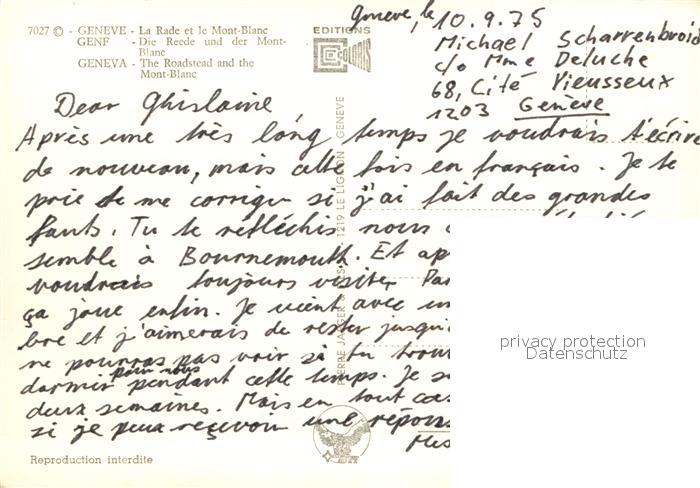 7027 © - GENEVE - La Rade et le Mont-Blanc
GENF - Die Reede und der Mont-
Blanc
GENEVA - The Roadstead and the
Mont-Blanc
EDITIONS
Genève, le 10.9.75
Michael Scharrenbroid
c/o Mme Deluche
68, Cité Vieusseux
1203 Genève
Dear Ghislaine
Après une très long temps je voudrais t'écrire
de nouveau, mais cette fois en français. Je te
prie de me corriger si j'ai fait des grandes
fauts. Tu te refléchis nous
semble à Bournemouth. Et ap
voudrais toujours visiter Par
ça joue enfin. Je vient avec un
bre et j'aimerais de rester jusqu'
ne pourras pas voir si tu trou
pour nous
darmir pendant cette temps. Je s
deux semaines. Mais en tout cas
si je peux reçevoir une répons
PIERRE JAEGER 1219 LE LIGNON GENEVE
Reproduction interdite
privacy protection
Datenschutz